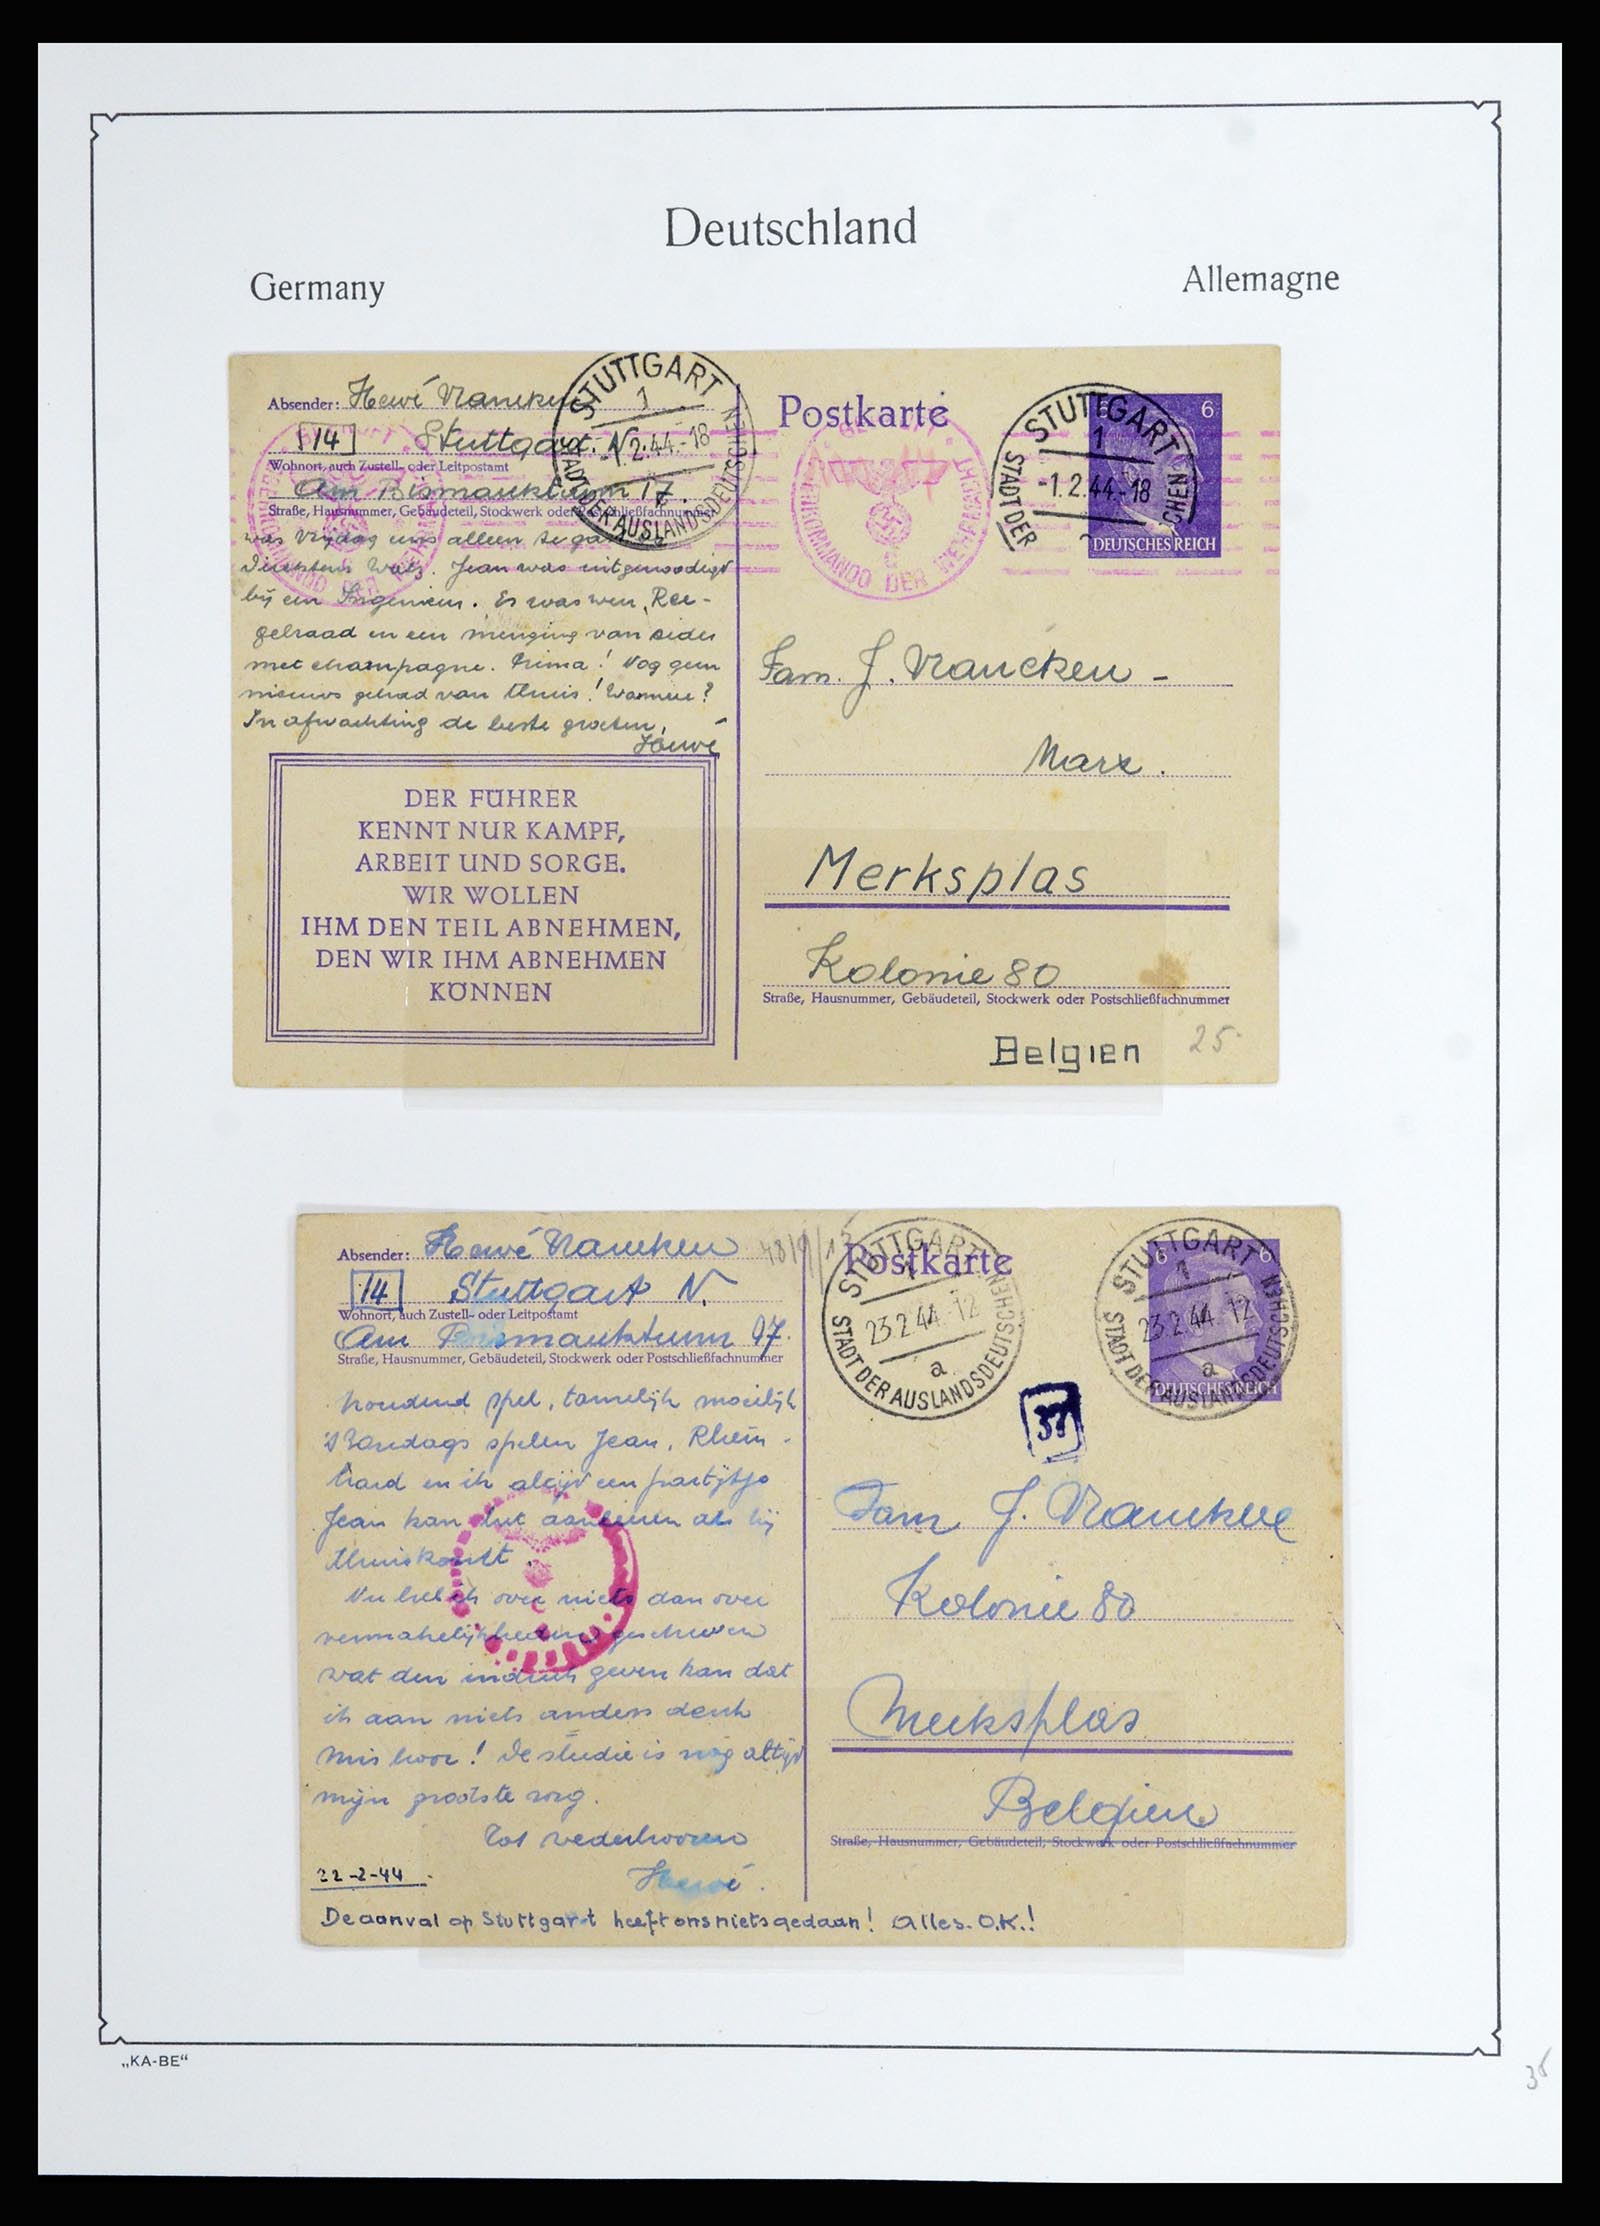 Deutschland
Germany
Allemagne
Absender: Hervé Vrancken
14 Stuttgart. N
Wohnort, auch Zustell- oder Leitpostamt
Am Bismarckturm 17.
Straße, Hausnummer, Gebäudeteil, Stockwerk oder Postschließfachnummer
was Vrijdag ons alleen te
Jean was uitgenoodigd
bij een Ingenieur. Er was wen, Ree-
gebraad en een menging van sider
met champagne. Prima! Nog geen
nieuws gehad van thuis! Wanneer?
In afwachting de beste groeten,
Hervé
DER FÜHRER
KENNT NUR KAMPF,
ARBEIT UND SORGE.
WIR WOLLEN
IHM DEN TEIL ABNEHMEN,
DEN WIR IHM ABNEHMEN
KÖNNEN
STUTTGART 1
-1.2.44.-18
STADT DER AUSLANDSDEUTSCHEN
Postkarte
STUTTGART
1
-1.2.44.-18
STADT DER
SCHEN
6 6
DEUTSCHES REICH
OBERKOMMANDO DER WEHRMACHT
Fam. J. Vrancken -
Marx.
Merksplas
Kolonie 80
Straße, Hausnummer, Gebäudeteil, Stockwerk oder Postschließfachnummer
Belgien
25.-
Absender: Hervé Vrancken
14 Stuttgart N.
Wohnort, auch Zustell- oder Leitpostamt
Am Bismarckturm 17.
Straße, Hausnummer, Gebäudeteil, Stockwerk oder Postschließfachnummer
houdend spel, tamelijk moeilijk
's Zondags spelen Jean, Rhein-
hard en ik altijd een partijtje
Jean kan het aanleren als hij
thuiskomt.
Nu heb ik over niets dan over
vermakelijkheden geschreven
wat den indruk geven kan dat
ik aan niets anders denk
Mis hoor! De studie is nog altijd
mijn grootste zorg.
Tot wederhooren
22-2-44.
Hervé.
De aanval op Stuttgart heeft ons niets gedaan! Alles. O.K.!
Postkarte
STUTTGART
1
23.2.44.-12
a
STADT DER AUSLANDSDEUTSCHEN
STUTTGART
1
23.2.44.-12
a
STADT DER AUSLANDSDEUTSCHEN
6 6
DEUTSCHES REICH
Fam J. Vrancken
Kolonie 80
Merksplas
Belgien
Straße, Hausnummer, Gebäudeteil, Stockwerk oder Postschließfachnummer
„KA-BE“
35